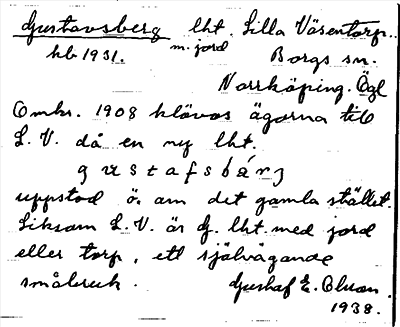 Gustavsberg lht. Lilla Väsentorp.
kb 1931. m. jord Borgs sn.
Norrköping. Ögl
Omkr. 1908 klövos ägorna till
L. V. då en ny lht.
gustafsbárj
uppstod ö. om det gamla stället.
Liksom L. V. är G. lht med jord
eller torp, ett självägande
småbruk. Gustaf E. Olson.
1938.